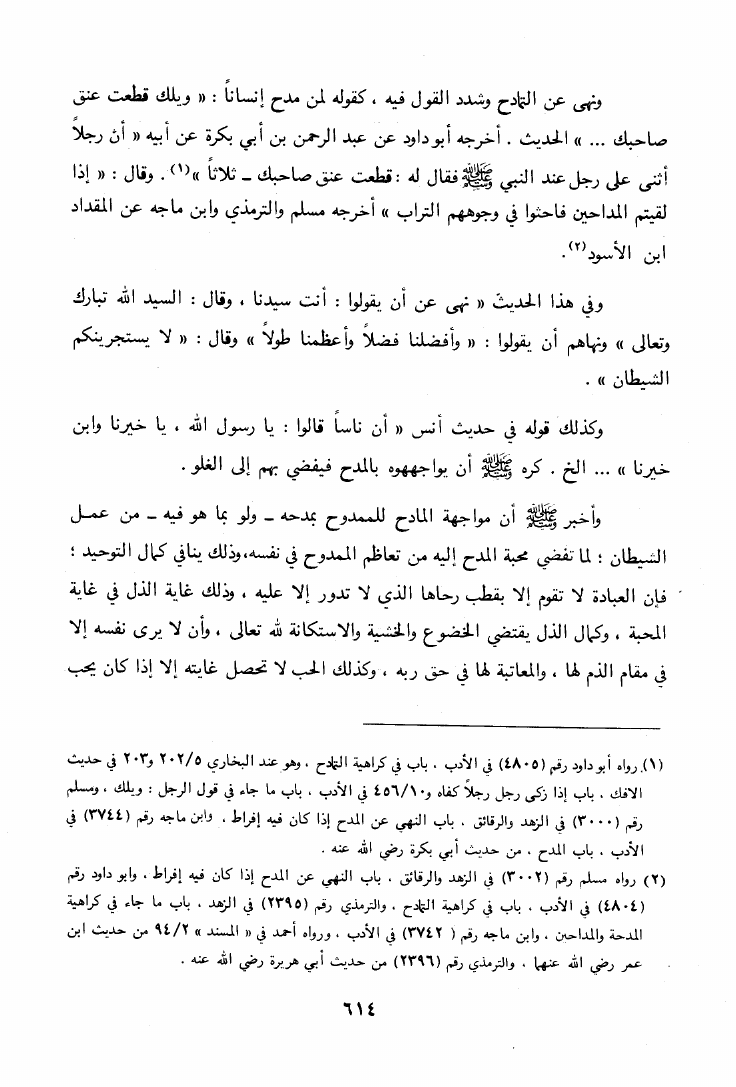 ونهى عن التمادح وشدد القول فيه ، كقوله لمن مدح إنساناً : « ويلك قطعت عنق
صاحبك ... » الحديث . أخرجه أبو داود عن عبد الرحمن بن أبي بكرة عن أبيه « أن رجلاً
أثنى على رجل عند النبي ﷺ فقال له : قطعت عنق صاحبك ـ ثلاثاً »(١) . وقال : « إذا
لقيتم المداحين فاحثوا في وجوههم التراب » أخرجه مسلم والترمذي وابن ماجه عن المقداد
ابن الأسود(٢).
وفي هذا الحديث « نهى عن أن يقولوا : أنت سيدنا ، وقال : السيد الله تبارك
وتعالى » ونهاهم أن يقولوا : « وأفضلنا فضلاً وأعظمنا طولاً » وقال : « لا يستجرينكم
الشيطان » .
وكذلك قوله في حديث أنس « أن ناساً قالوا : يا رسول الله ، يا خيرنا وابن
خيرنا » ... الخ . كره ﷺ أن يواجههوه بالمدح فيفضي بهم إلى الغلو .
وأخبر ﷺ أن مواجهة المادح للممدوح بمدحه ـ ولو بما هو فيه ـ من عمـل
الشيطان ؛ لما تفضي محبة المدح إليه من تعاظم الممدوح في نفسه، وذلك ينافي كمال التوحيد ؛
فإن العبادة لا تقوم إلا بقطب رحاها الذي لا تدور إلا عليه ، وذلك غاية الذل في غاية
المحبة ، وكمال الذل يقتضي الخضوع والخشية والاستكانة لله تعالى ، وأن لا يرى نفسه إلا
في مقام الذم لها ، والمعاتبة لها في حق ربه ، وكذلك الحب لا تحصل غايته إلا إذا كان يحب
(١) رواه أبو داود رقم (٤٨٠٥) في الأدب ، باب في كراهية التمادح ، وهو عند البخاري ٢٠٢/٥ و٢٠٣ في حديث
الافك ، باب إذا زكى رجل رجلاً كفاه و٤٥٦/١٠ في الأدب ، باب ما جاء في قول الرجل : ويلك ، ومسلم
رقم (٣٠٠٠) في الزهد والرقائق ، باب النهي عن المدح إذا كان فيه إفراط ، وابن ماجه رقم (٣٧٤٤) في
الأدب ، باب المدح ، من حديث أبي بكرة رضي الله عنه .
(٢) رواه مسلم رقم (٣٠٠٢) في الزهد والرقائق ، باب النهي عن المدح إذا كان فيه إفراط ، وابو داود رقم
(٤٨٠٤) في الأدب ، باب في كراهية التمادح ، والترمذي رقم (٢٣٩٥) في الزهد ، باب ما جاء في كراهية
المدحة والمداحين ، وابن ماجه رقم ( ٣٧٤٢) في الأدب ، ورواه أحمد في « المسند » ٩٤/٢ من حديث ابن
عمر رضي الله عنهما ، والترمذي رقم (٢٣٩٦) من حديث أبي هريرة رضي الله عنه .
٦١٤